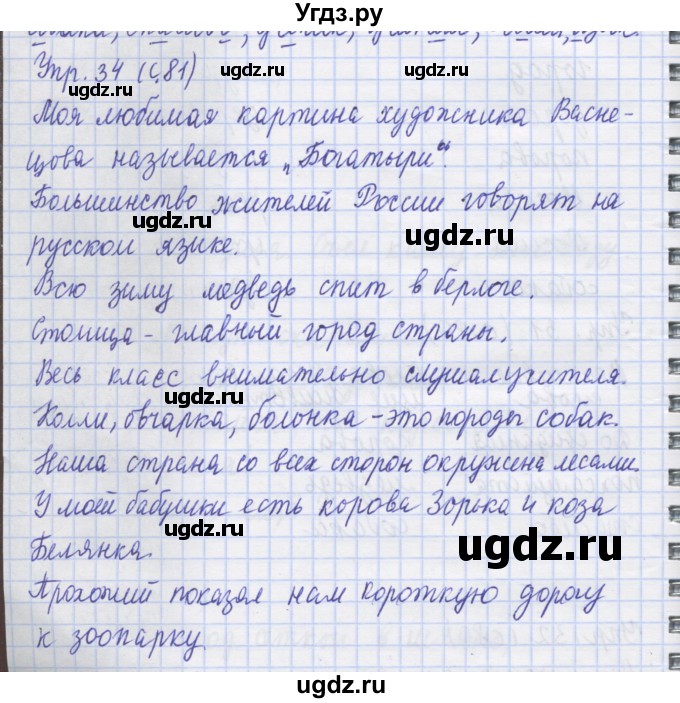 Угдз.ру
Упр. 34 (с. 81)
Моя любимая картина художника Васне-
цова называется „Богатыри“.
Большинство жителей России говорят на
русском языке.
Всю зиму медведь спит в берлоге.
Столица - главный город страны.
Весь класс внимательно слушал учителя.
Колли, овчарка, болонка - это породы собак.
Наша страна со всех сторон окружена лесами.
У моей бабушки есть корова Зорька и коза
Белянка.
Прохожий показал нам короткую дорогу
к зоопарку.
ugdz.ru
ugdz.ru
ugdz.ru
ugdz.ru
ugdz.ru
ugdz.ru
ugdz.ru
ugdz.ru
ugdz.ru
ugdz.ru
ugdz.ru